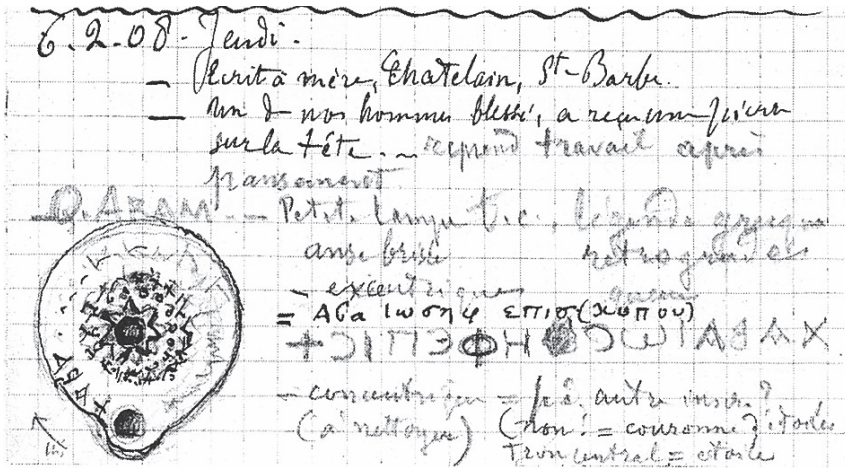 6.2.08 - Jeudi -
— Écrit à mère, Chatelain, St-Barbe.
— Un de nos hommes blessé, a reçu une pierre
sur la tête. — reprend travail après
pansement
O. ABAM. — Petite lampe t.c., légende grecque
anse brisée rétrograde
- excentrique
= Αβα ϊωσηφ επισ(κοπου)
+ƆIΠƎΦHƆWIABAX
- concentrique = p.ê. autre inscr. ?
(à nettoyer) (non ! = couronne) étoiles
Trou central = étoile